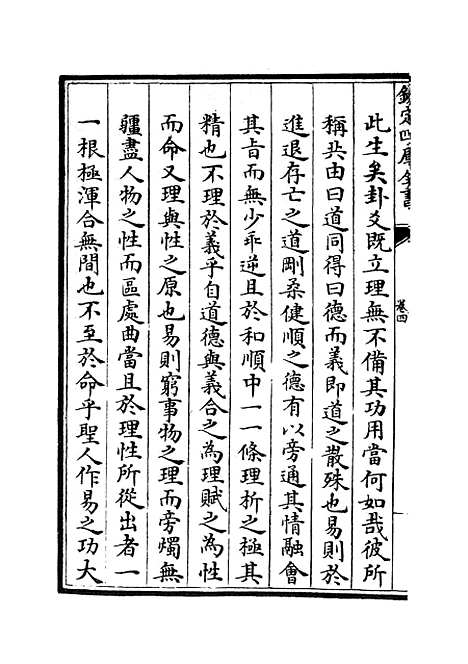 欽定四庫全書
卷四
此生矣卦爻既立理無不備其功用當何如哉彼所
稱共由曰道同得曰德而義即道之散殊也易則於
進退存亡之道剛柔健順之德有以旁通其情融會
其旨而無少乖逆且於和順中一一條理析之極其
精也不理於義乎自道德與義合之為理賦之為性
而命又理與性之原也易則窮事物之理而旁燭無
疆盡人物之性而區處曲當且於理性所從出者一
一根極渾合無間也不至於命乎聖人作易之功大